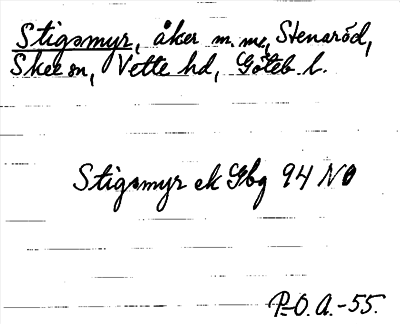 Stigsmyr, åker m. m., Stensröd,
Skee sn, Vette hd, Göteb. l.
Stigsmyr ek Gbg 94 NO
P-O. A.-55.